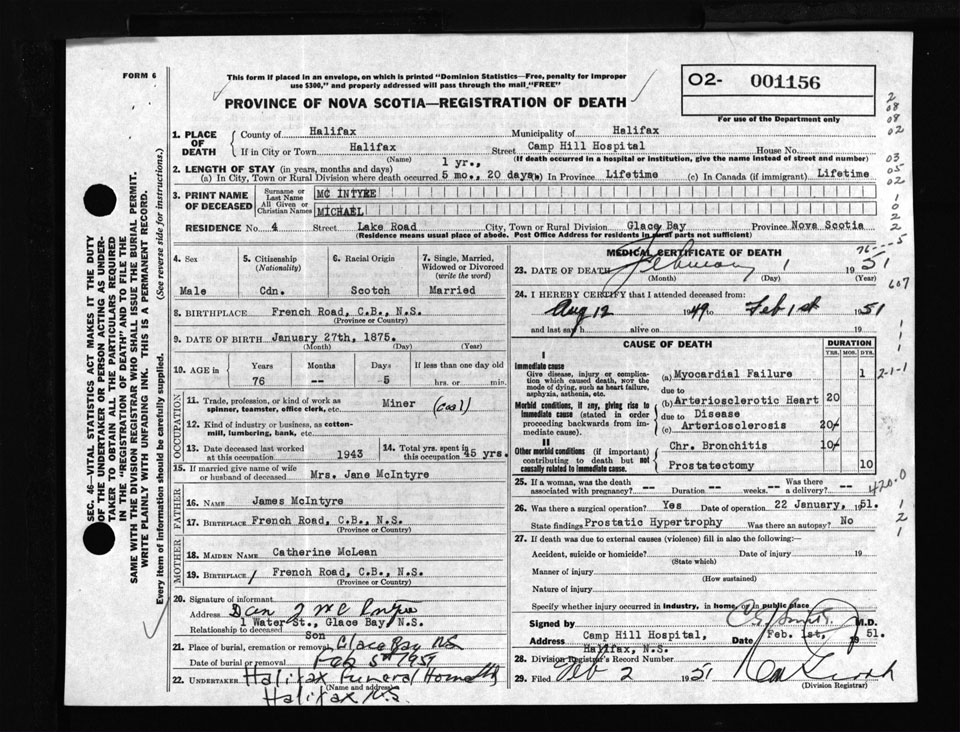 FORM 6
This form if placed in an envelope, on which is printed "Dominion Statistics—Free, penalty for improper
use $300," and properly addressed will pass through the mail "FREE"
PROVINCE OF NOVA SCOTIA—REGISTRATION OF DEATH
02- 001156
For use of the Department only
SEC. 46—VITAL STATISTICS ACT MAKES IT THE DUTY
OF THE UNDERTAKER OR PERSON ACTING AS UNDER-
TAKER TO OBTAIN ALL THE PARTICULARS REQUIRED
IN THE "REGISTRATION OF DEATH" AND TO FILE THE
SAME WITH THE DIVISION REGISTRAR WHO SHALL ISSUE THE BURIAL PERMIT.
WRITE PLAINLY WITH UNFADING INK. THIS IS A PERMANENT RECORD.
Every item of information should be carefully supplied. (See reverse side for instructions.)
1. PLACE OF DEATH
County of Halifax Municipality of Halifax
If in City or Town Halifax Street Camp Hill Hospital House No.
(Name) (If death occurred in a hospital or institution, give the name instead of street and number)
2. LENGTH OF STAY (in years, months and days) 1 yr.,
(a) In City, Town or Rural Division where death occurred 5 mo., 20 days (b) In Province Lifetime (c) In Canada (if immigrant) Lifetime
3. PRINT NAME OF DECEASED
Surname or Last Name MC INTYRE
All Given or Christian Names MICHAEL
RESIDENCE No. 4 Street Lake Road City, Town or Rural Division Glace Bay Province Nova Scotia
(Residence means usual place of abode. Post Office Address for residents in rural parts not sufficient)
4. Sex
Male
5. Citizenship
(Nationality)
Cdn.
6. Racial Origin
Scotch
7. Single, Married,
Widowed or Divorced
(write the word)
Married
8. BIRTHPLACE French Road, C.B., N.S.
(Province or Country)
9. DATE OF BIRTH January 27th, 1875.
(Month) (Day) (Year)
10. AGE in Years Months Days If less than one day old
76 -- 5 hrs. or min.
OCCUPATION
11. Trade, profession, or kind of work as
spinner, teamster, office clerk, etc. Miner (coal)
12. Kind of industry or business, as cotton-
mill, lumbering, bank, etc.
13. Date deceased last worked
at this occupation 1943
14. Total yrs. spent in
this occupation 45 yrs.
15. If married give name of wife
or husband of deceased Mrs. Jane McIntyre
FATHER
16. NAME James McIntyre
17. BIRTHPLACE French Road, C.B., N.S.
(Province or Country)
MOTHER
18. MAIDEN NAME Catherine McLean
19. BIRTHPLACE French Road, C.B., N.S.
(Province or Country)
20. Signature of informant Dan J McIntyre
Address 1 Water St., Glace Bay, N.S.
Relationship to deceased Son
21. Place of burial, cremation or removal Glace Bay NS
Date of burial or removal Feb 5th 1951
22. UNDERTAKER Halifax Funeral Home
(Name and address)
Halifax N.S.
MEDICAL CERTIFICATE OF DEATH
23. DATE OF DEATH February 1 1951
(Month) (Day)
24. I HEREBY CERTIFY that I attended deceased from:
Aug 12 1949 to Feb 1st 1951
and last saw h alive on 19
CAUSE OF DEATH DURATION
YRS. MOS. DYS.
I
Immediate cause
Give disease, injury or complica-
tion which caused death, NOT the
mode of dying, such as heart failure,
asphyxia, asthenia, etc.
(a) Myocardial Failure 1
due to
Morbid conditions, if any, giving rise to
immediate cause (stated in order
proceeding backwards from im-
mediate cause).
(b) Arteriosclerotic Heart 20
due to Disease
(c) Arteriosclerosis 20
II
Other morbid conditions (if important)
contributing to death but not
causally related to immediate cause.
Chr. Bronchitis 10
Prostatectomy 10
25. If a woman, was the death
associated with pregnancy? -- Duration -- weeks. -- Was there
a delivery? --
26. Was there a surgical operation? Yes Date of operation 22 January, 1951.
State findings Prostatic Hypertrophy Was there an autopsy? No
27. If death was due to external causes (violence) fill in also the following:—
Accident, suicide or homicide? Date of injury 19
(State which)
Manner of injury
(How sustained)
Nature of injury
Specify whether injury occurred in industry, in home, or in public place
Signed by M.D.
Address Camp Hill Hospital, Date Feb. 1st, 1951.
Halifax, N.S.
28. Division Registrar's Record Number
29. Filed Feb 2 1951
(Division Registrar)
2
08
08
02
03
05
02
1
0
2
2
76---5
607
2-1-1
420.0
1
2
1